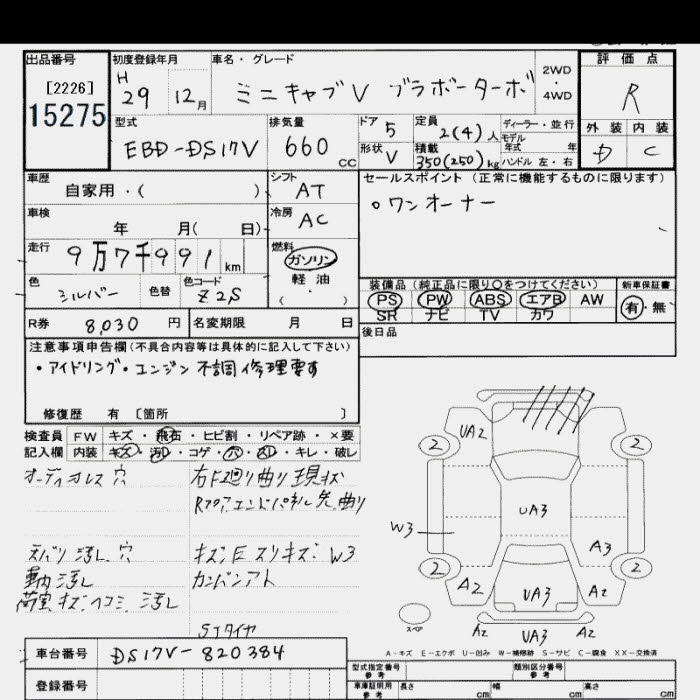 出品番号 初度登録年月 車名・グレード 評価点
[2226] H 29 12月 ミニキャブV ブラボーターボ 2WD・4WD R
15275
型式 排気量 ドア 5 定員 2(4)人 ディーラー・並行 外装 内装
EBD-DS17V 660cc 形状 V 積載 350(250)kg モデル年式 年 ハンドル 左・右 D C
車歴 自家用・( ) シフト AT セールスポイント(正常に機能するものに限ります)
車検 年 月( 日) 冷房 AC ・ワンオーナー
走行 9万7千991km 燃料 ガソリン
軽油
色 シルバー 色替 色コード Z2S ・( )
装備品(純正品に限り〇をつけてください) 新車保証書
PS PW ABS エアB AW 有・無
SR ナビ TV カワ
R券 8,030円 名変期限 月 日 後日品
注意事項申告欄(不具合内容等は具体的に記入して下さい)
・アイドリング・エンジン不調修理要す
修復歴 有 〔箇所 〕
検査員 FW キズ・飛石・ヒビ割・リペア跡・×要
記入欄 内装 キズ・汚レ・コゲ・穴・スレ・キレ・破レ
オーディオレス 穴 右F廻り曲り現状
Rフロアエンドパネル先曲り
天バリ汚レ 穴 キズ、E スリキズ・W3
車内汚レ カンバンアト
荷室キズヘコミ汚レ
STタイヤ
UA2
2 2
UA3
W3
A3
2 2
A2 UA3 A2
スペア
A2 UA3 A2
A-キズ E-エクボ U-凹み W-補修跡 S-サビ C-腐食 XX-交換済
車台番号 DS17V-820384
登録番号
型式指定番号 参考 類別区分番号 参考
車庫証明用 参考 長さ cm 幅 cm 高さ cm